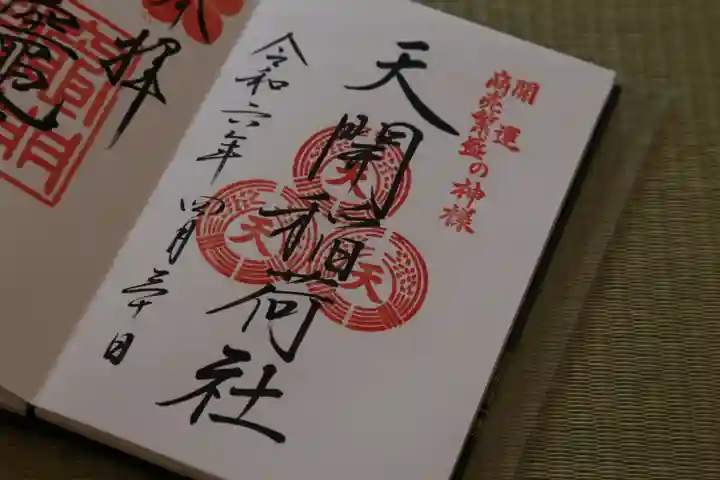 開運
商売繁盛の神様
天開稲荷社
天
天
天
令和六年 四月三十日
拝